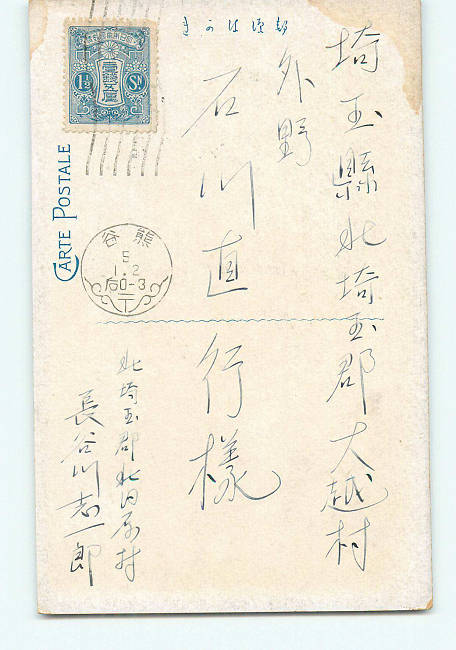 きかは便郵
埼玉縣北埼玉郡大越村
外野
石川直行様
北埼玉郡北河原村
長谷川志一郎
CARTE POSTALE
壹錢五厘
1½ Sn
熊谷
5
1.2
后0-3